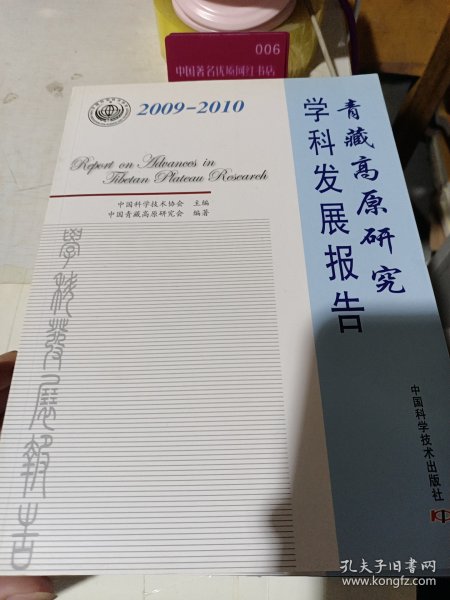 006
中国著名优质网红书店
2009-2010
Report on Advances in
Tibetan Plateau Research
中国科学技术协会 主编
中国青藏高原研究会 编著
青藏高原研究
学科发展报告
學科發展報告
中国科学技术出版社
孔夫子旧书网
www.kongfz.com